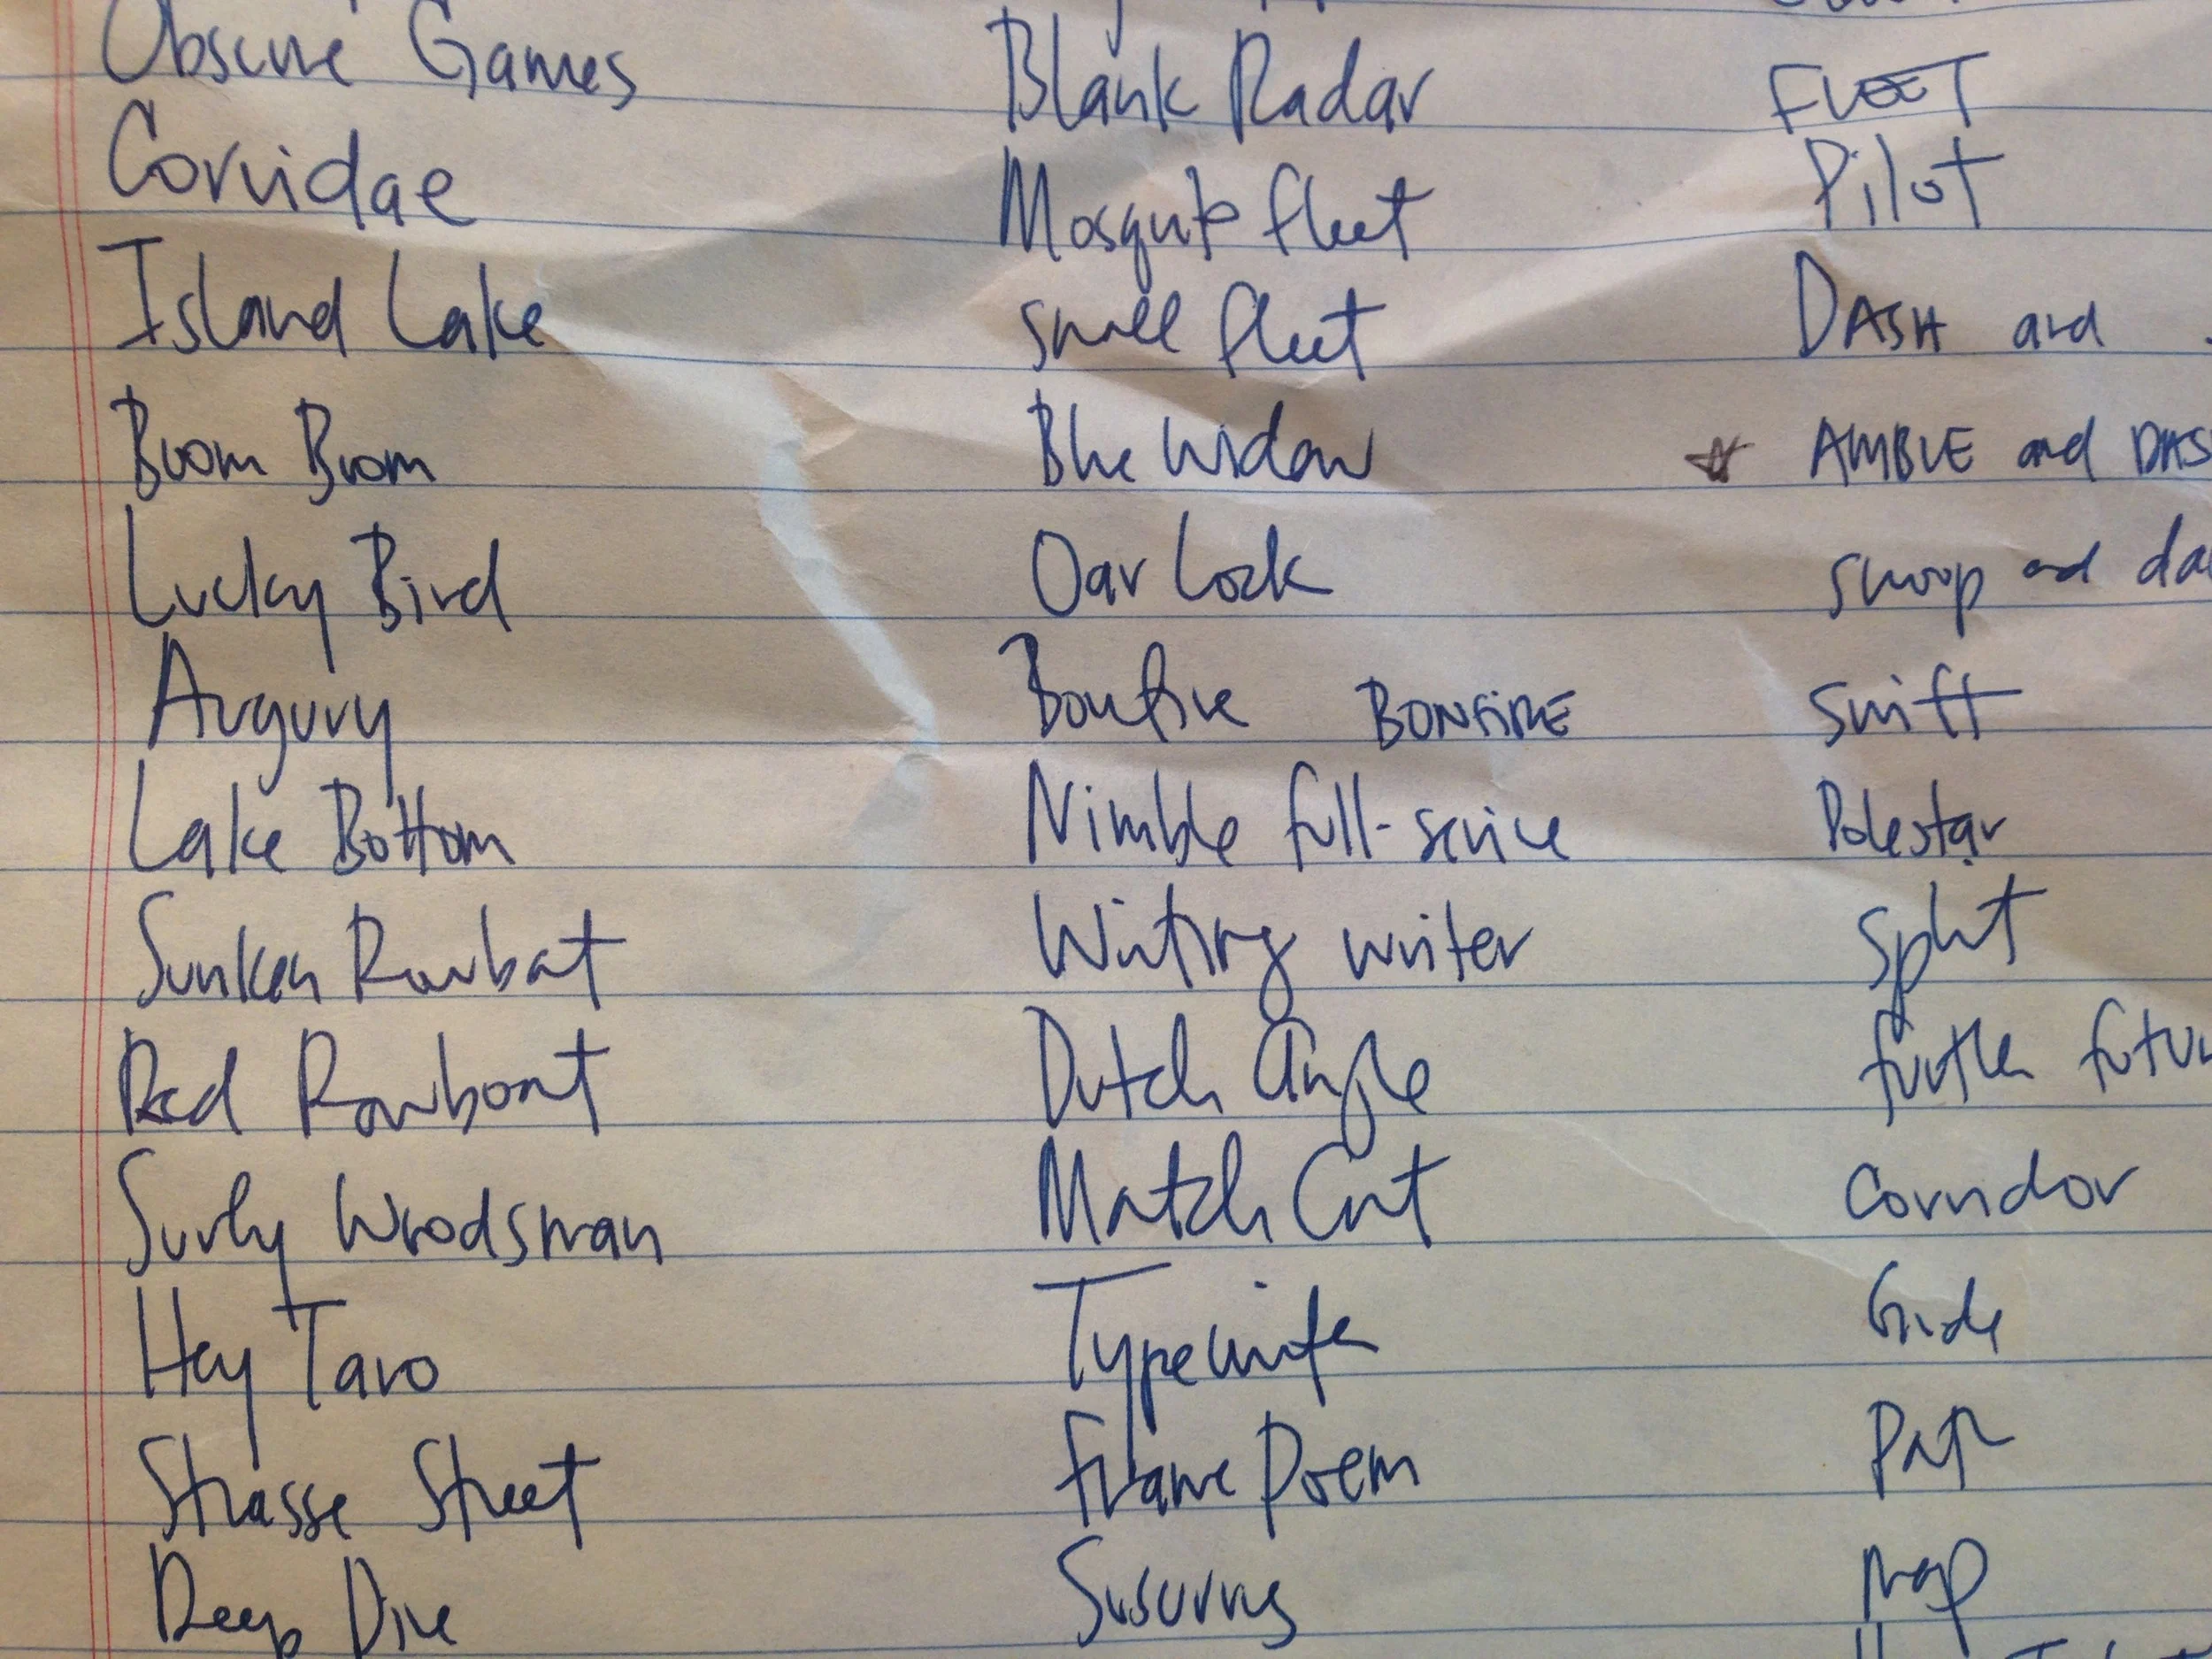 Obscure Games
Corvidae
Island Lake
Boom Boom
Lucky Bird
Augury
Lake Bottom
Sunken Rowbat
Red Rowboat
Surly Woodsman
Hey Taro
Strasse Street
Deep Dive
Blank Radar
Mosquito fleet
small fleet
Blue Widow
Oar Lock
Bonfire BONFIRE
Nimble full-service
Writing writer
Dutch Angle
Match Cut
Typewriter
Frame Poem
Susurrus
FLEET
Pilot
DASH and
AMBLE and DAS
swoop and da
Swift
Polestar
Split
further futur
Corridor
Guide
Path
Map